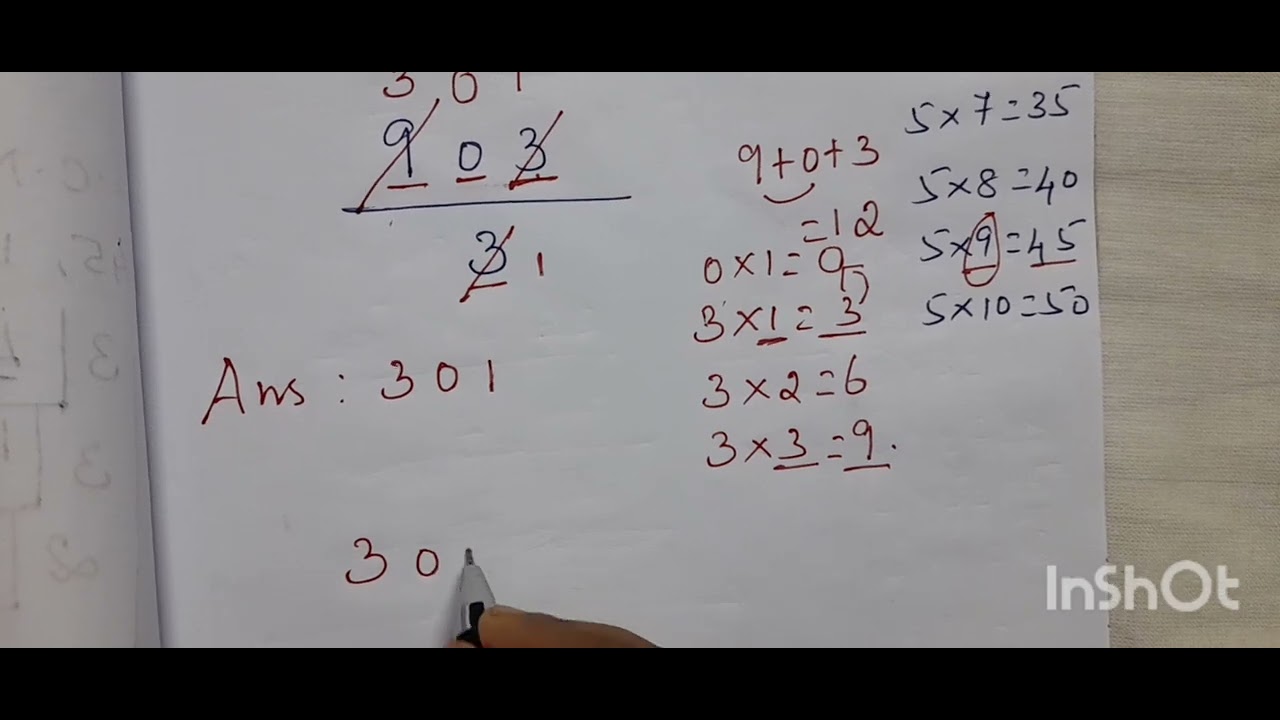 3 0 1
9 0 3
3 1
Ans : 3 0 1
3 0
9+0+3
=12
0×1=0
3×1=3
3×2=6
3×3=9.
5×7=35
5×8=40
5×9=45
5×10=50
InShOt